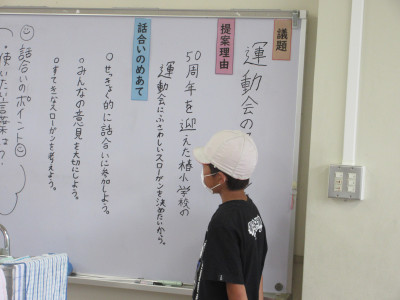 議題
運動会の
提案理由
50周年を迎えた椿小学校の
運動会にふさわしいスローガンを決めたいから。
話合いのめあて
○せっきょく的に話合いに参加しよう。
○みんなの意見を大切にしよう。
○すてきなスローガンを考えよう。
話合いのポイント
・使いたい言葉は?